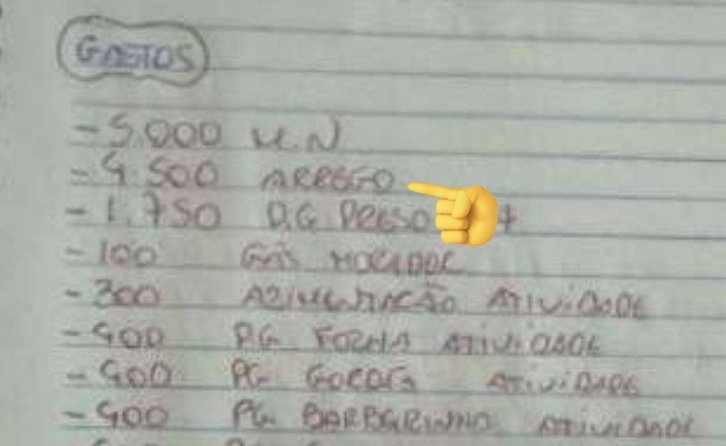 GASTOS
- 5.000 M.N
- 4.500 ARREGO
- 1.750 P.G PRESO
- 100 GÁS MORADOR
- 300 ALIMENTACÃO ATIVIDADE
- 400 P.G ATIVIDADE
- 400 PG ATIVIDADE
- 400 PG BARBEIRINHO ATIVIDADE